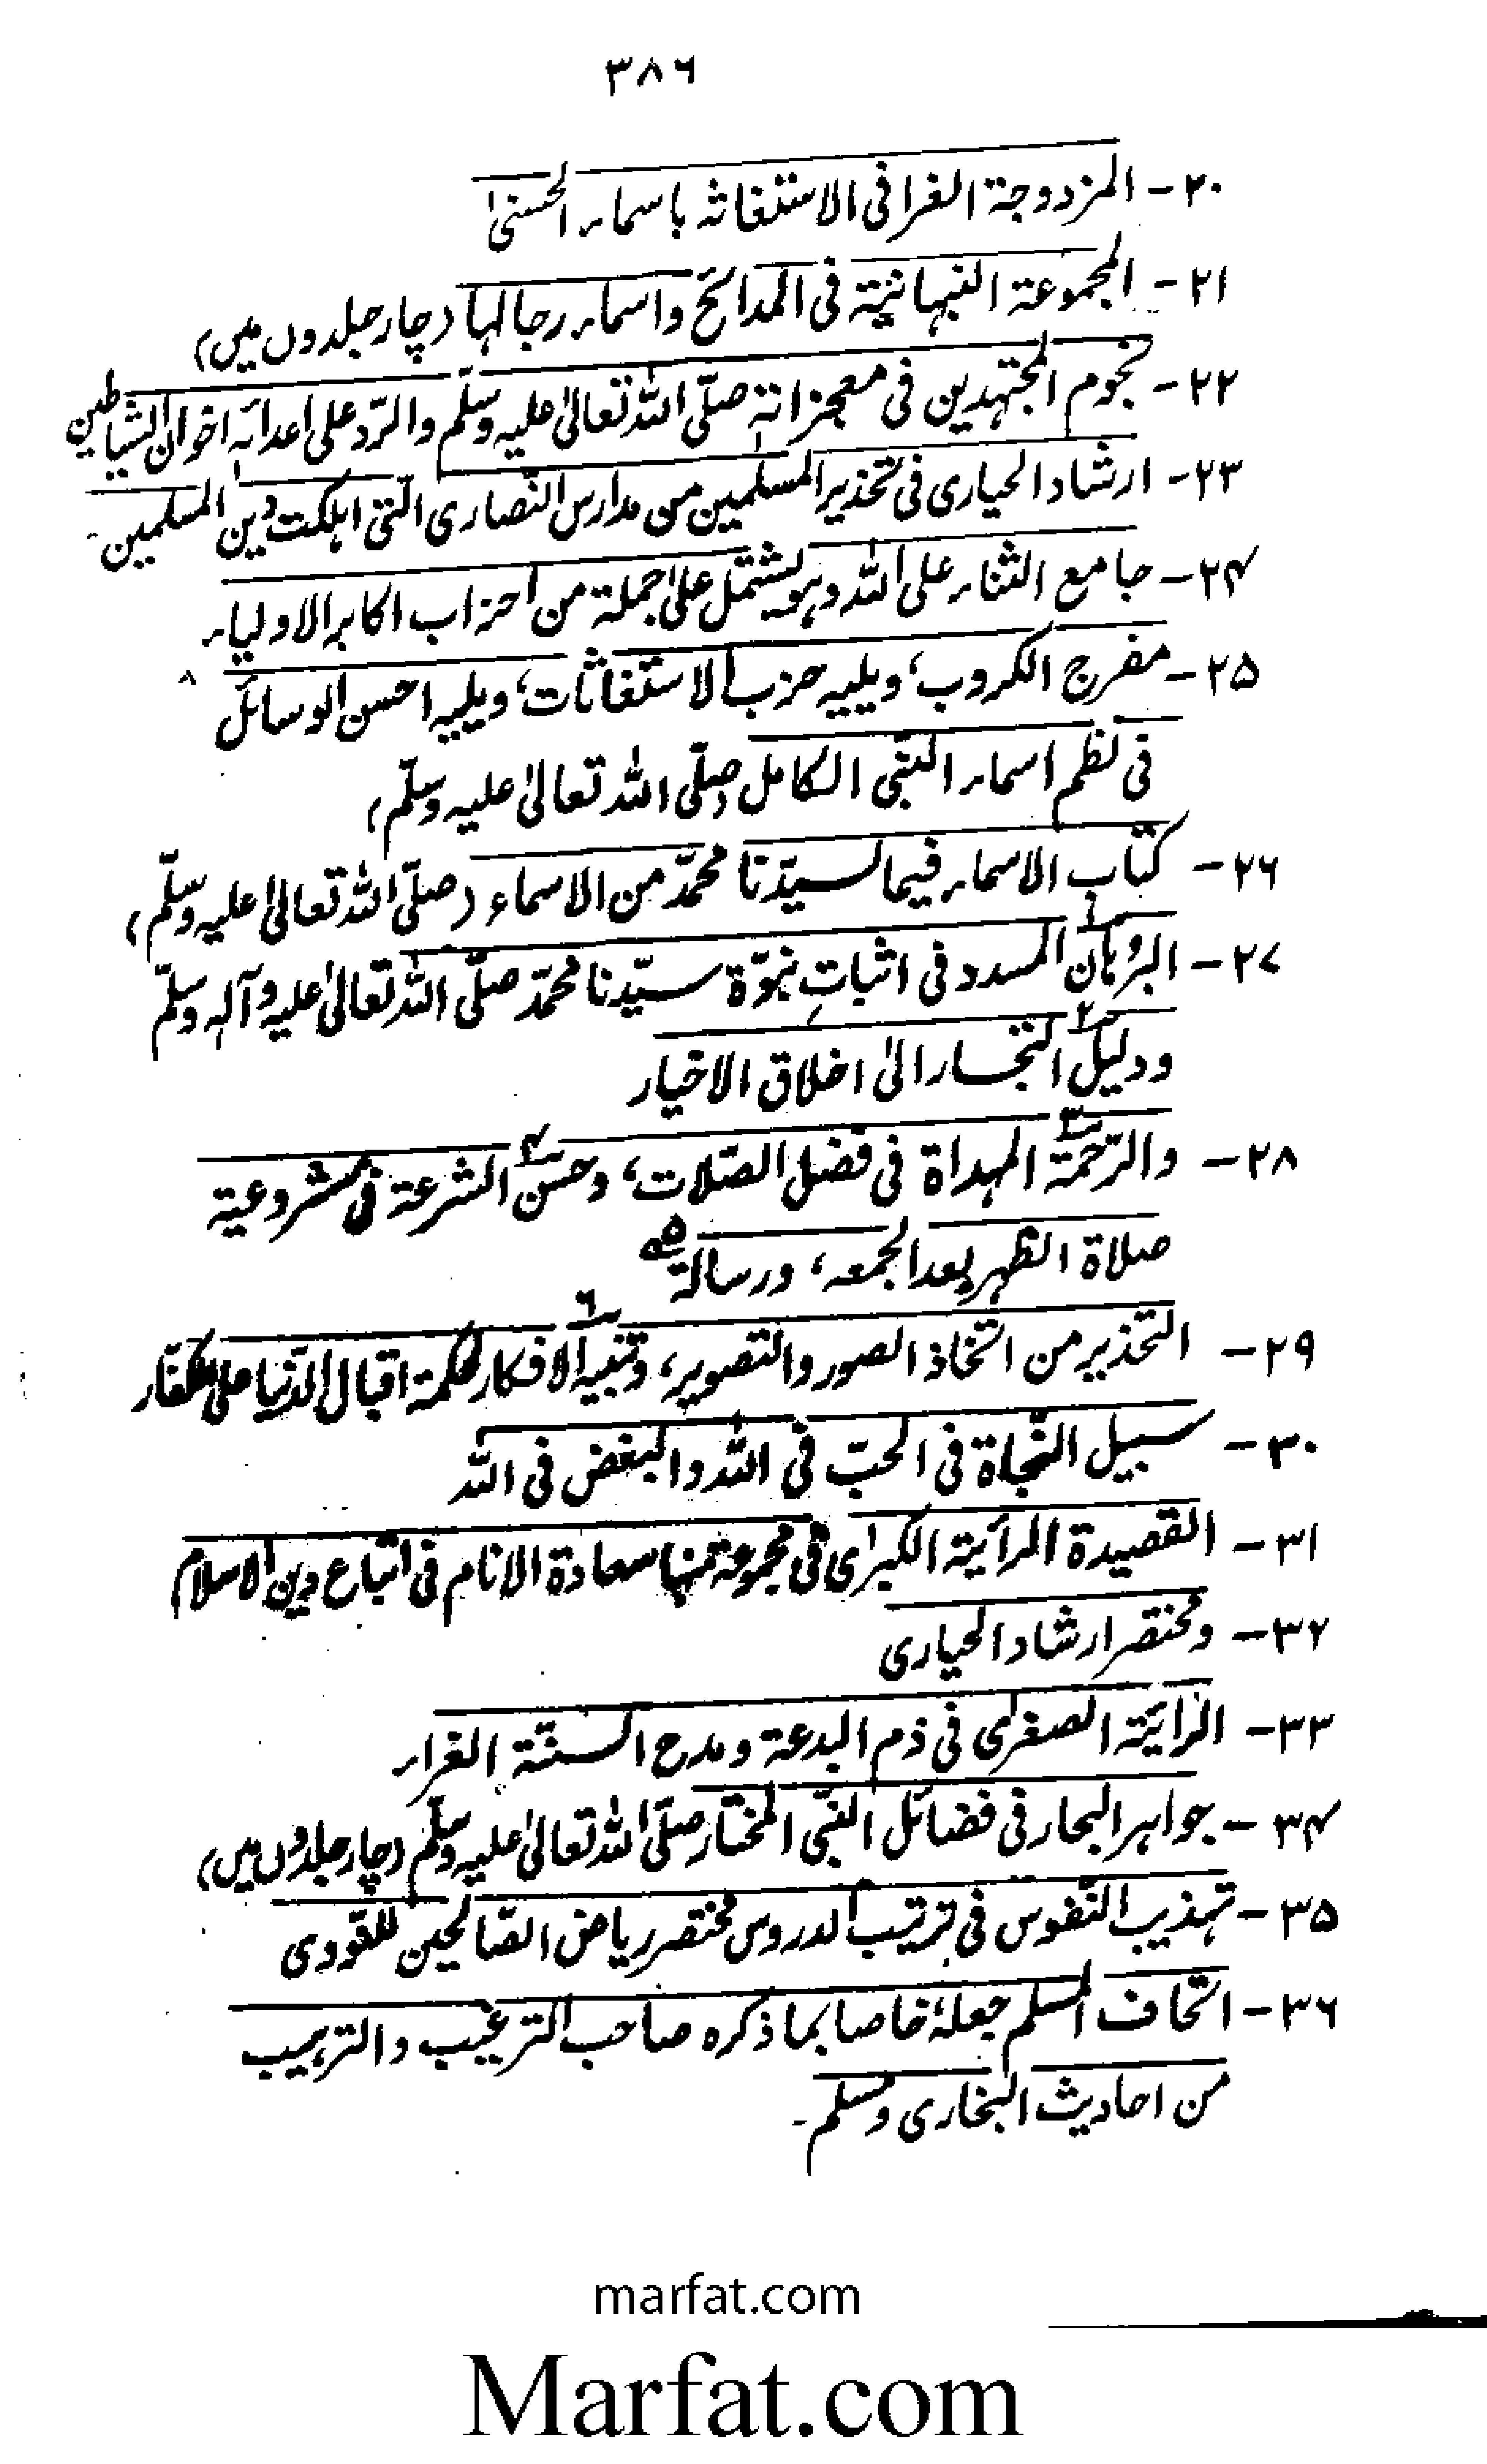 ۳۸۶
۲۰- المزدوجة الغرا فی الاستغاثہ باسماء الحسنیٰ
۲۱- المجموعة النبہانیّة فی المدائح واسماء رجالہا (چار جلدوں میں)
۲۲- نجوم المہتدین فی معجزاتہٖ صلّی اللہ تعالیٰ علیہ وسلّم والرّد علی اعدائہٖ اخوان الشیاطین
۲۳- ارشاد الحیاری فی تحذیر المسلمین من مدارس النّصاری الّتی اہلکت دین المسلمین۔
۲۴- جامع الثناء علی اللہ وہو یشتمل علیٰ جملة من احزاب اکابر الاولیاء
۲۵- مفرج الکروب، ویلیہ حزب الاستغاثات، ویلیہ احسن الوسائل
فی نظم اسماء النّبی الکامل (صلّی اللہ تعالیٰ علیہ وسلّم)
۲۶- کتاب الاسماء فیما لسیّدنا محمّد من الاسماء (صلّی اللہ تعالیٰ علیہ وسلّم)
۲۷- البُرہان۱ المسدد فی اثباتِ نبوّة سیّدنا محمّد صلّی اللہ تعالیٰ علیہ وآلہٖ وسلّم
ودلیل۲ التجار الیٰ اخلاق الاخیار
۲۸- والرّحمة۳ المہداة فی فضل الصّلات، وحسن۴ الشرعة فی مشروعیة
صلاة الظہر بعد الجمعہ، ورسالة۵
۲۹- التحذیر من اتخاذ الصور والتصویر، وتنبیہ۶ الافکار لحکمة اقبال الدّنیا علی الکفّار
۳۰- سبیل النّجاة فی الحبّ فی اللہ والبغض فی اللہ
۳۱- القصیدة الرأیة الکبرٰی فی مجموعة منہا سعادة الانام فی اتباع دین الاسلام
۳۲- ومختصر ارشاد الحیاری
۳۳- الرایّة الصغرٰی فی ذم البدعة ومدح السنّة الغراء
۳۴- جواہر البحار فی فضائل النّبی المختار صلّی اللہ تعالیٰ علیہ وسلّم (چار جلدوں میں)
۳۵- تہذیب النّفوس فی ترتیب الدروس مختصر ریاض الصّالحین للنّووی
۳۶- اتحاف المسلم جعلہٗ خاصا بما ذکرہ صاحب الترغیب والترہیب
من احادیث البخاری ومسلم۔
marfat.com
Marfat.com